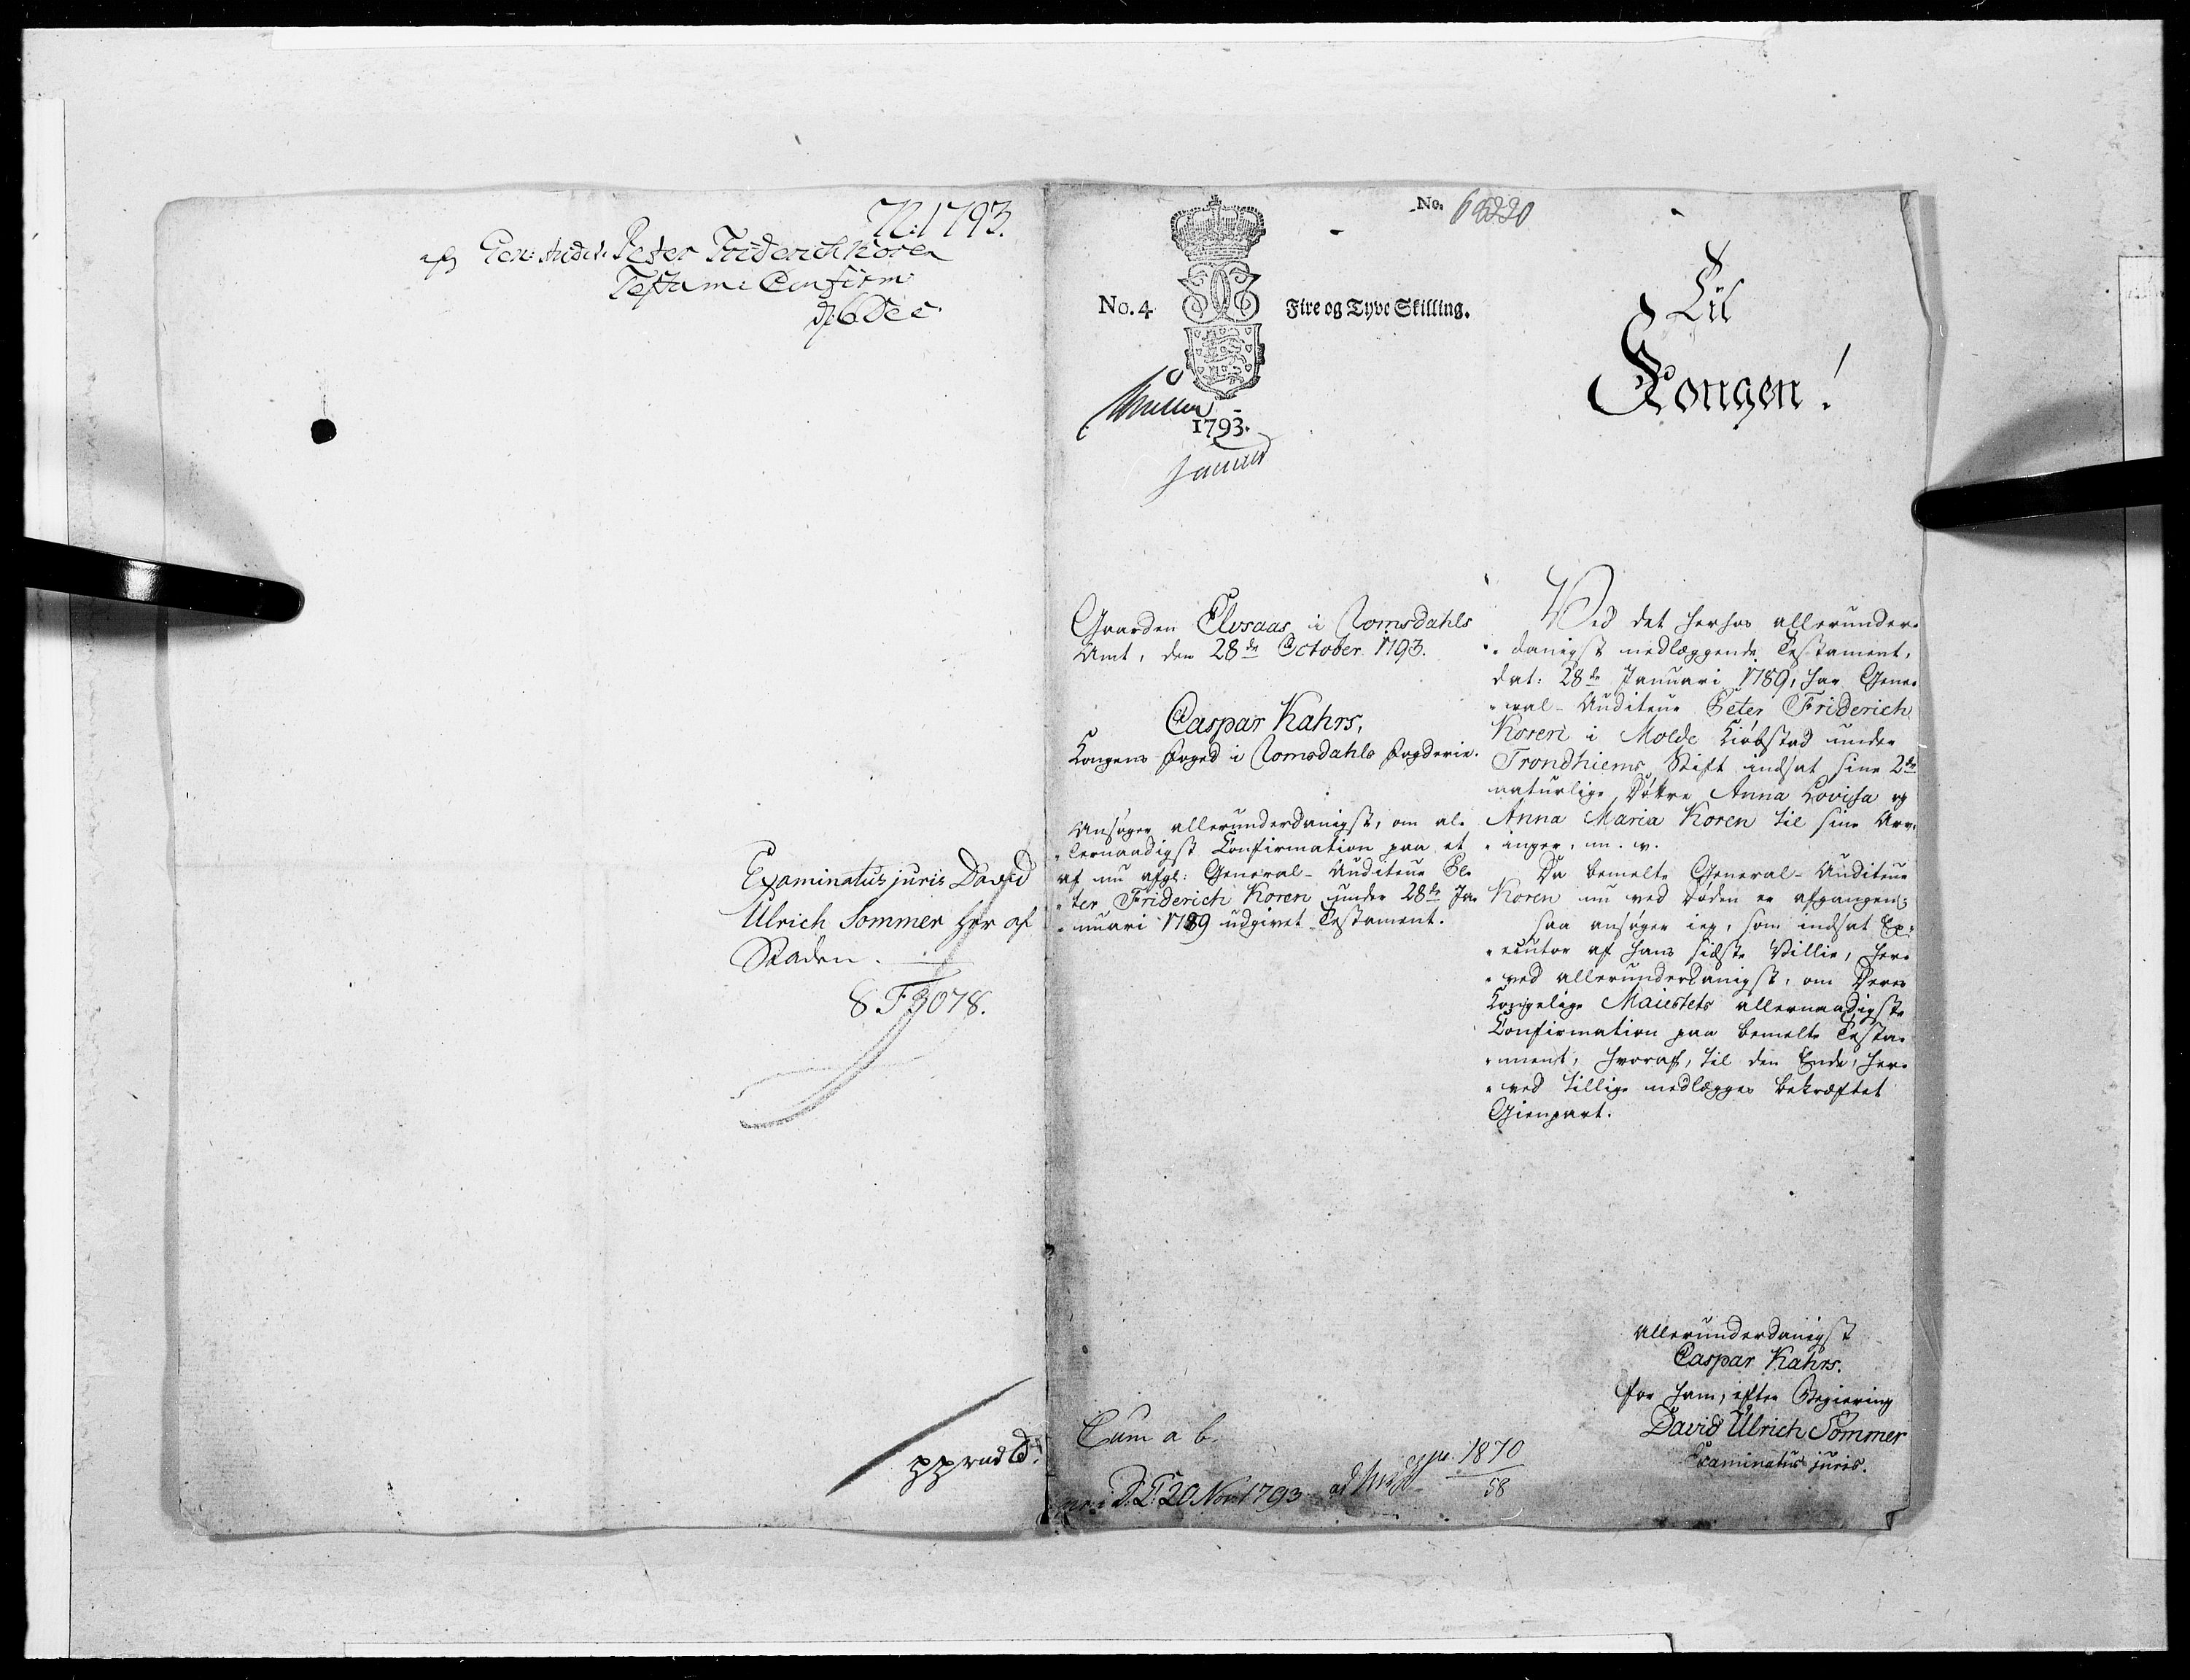 N: 1793.
afg Gen: Audit: Peter Friderich Koren
Testam: Confirm:
d. 6 Dec
Examinatus juris David
Ulrich Sommer her af
Staden.
8 F 3078.
No. 65220
No. 4
Fire og Tyve Skilling.
1793.
Til
Kongen!
Gaarden Elvsaas i Romsdahls
Amt, den 28de October 1793.
Caspar Kahrs,
Kongens Foged i Romsdahls Fogderie.
Ansøger allerunderdanigst, om al-
lernaadigst Confirmation paa et
af nu afgl: General-Auditeur Pe-
ter Friderich Koren under 28de Ja-
nuari 1789 udgivet Testament.
Ved det herhos allerunder-
danigst nedlæggende Testament,
dat: 28de Januari 1789, har Gene-
ral-Auditeur Peter Friderich
Koren i Molde Kiøbstad under
Trondhiems Stift indsat sine 2de
naturlige Døttre Anna Lovisa og
Anna Maria Koren til sine Arv-
inger, m. v.
Da bemelte General-Auditeur
Koren nu ved Døden er afgangen;
saa ansøger ieg, som indsat Ex-
ecutor af hans sidste Villie, her-
ved allerunderdanigst, om Deres
Kongelige Maiestets allernaadigste
Confirmation paa bemelte Testa-
ment, hvoraf, til den Ende, her-
ved tillige nedlægges bekræftet
Gienpart.
Allerunderdanigst
Caspar Kahrs.
for ham, efter Begiering
David Ulrich Sommer
Examinatus juris.
Cum a b.
D. 20 Nov 1793
1870
58